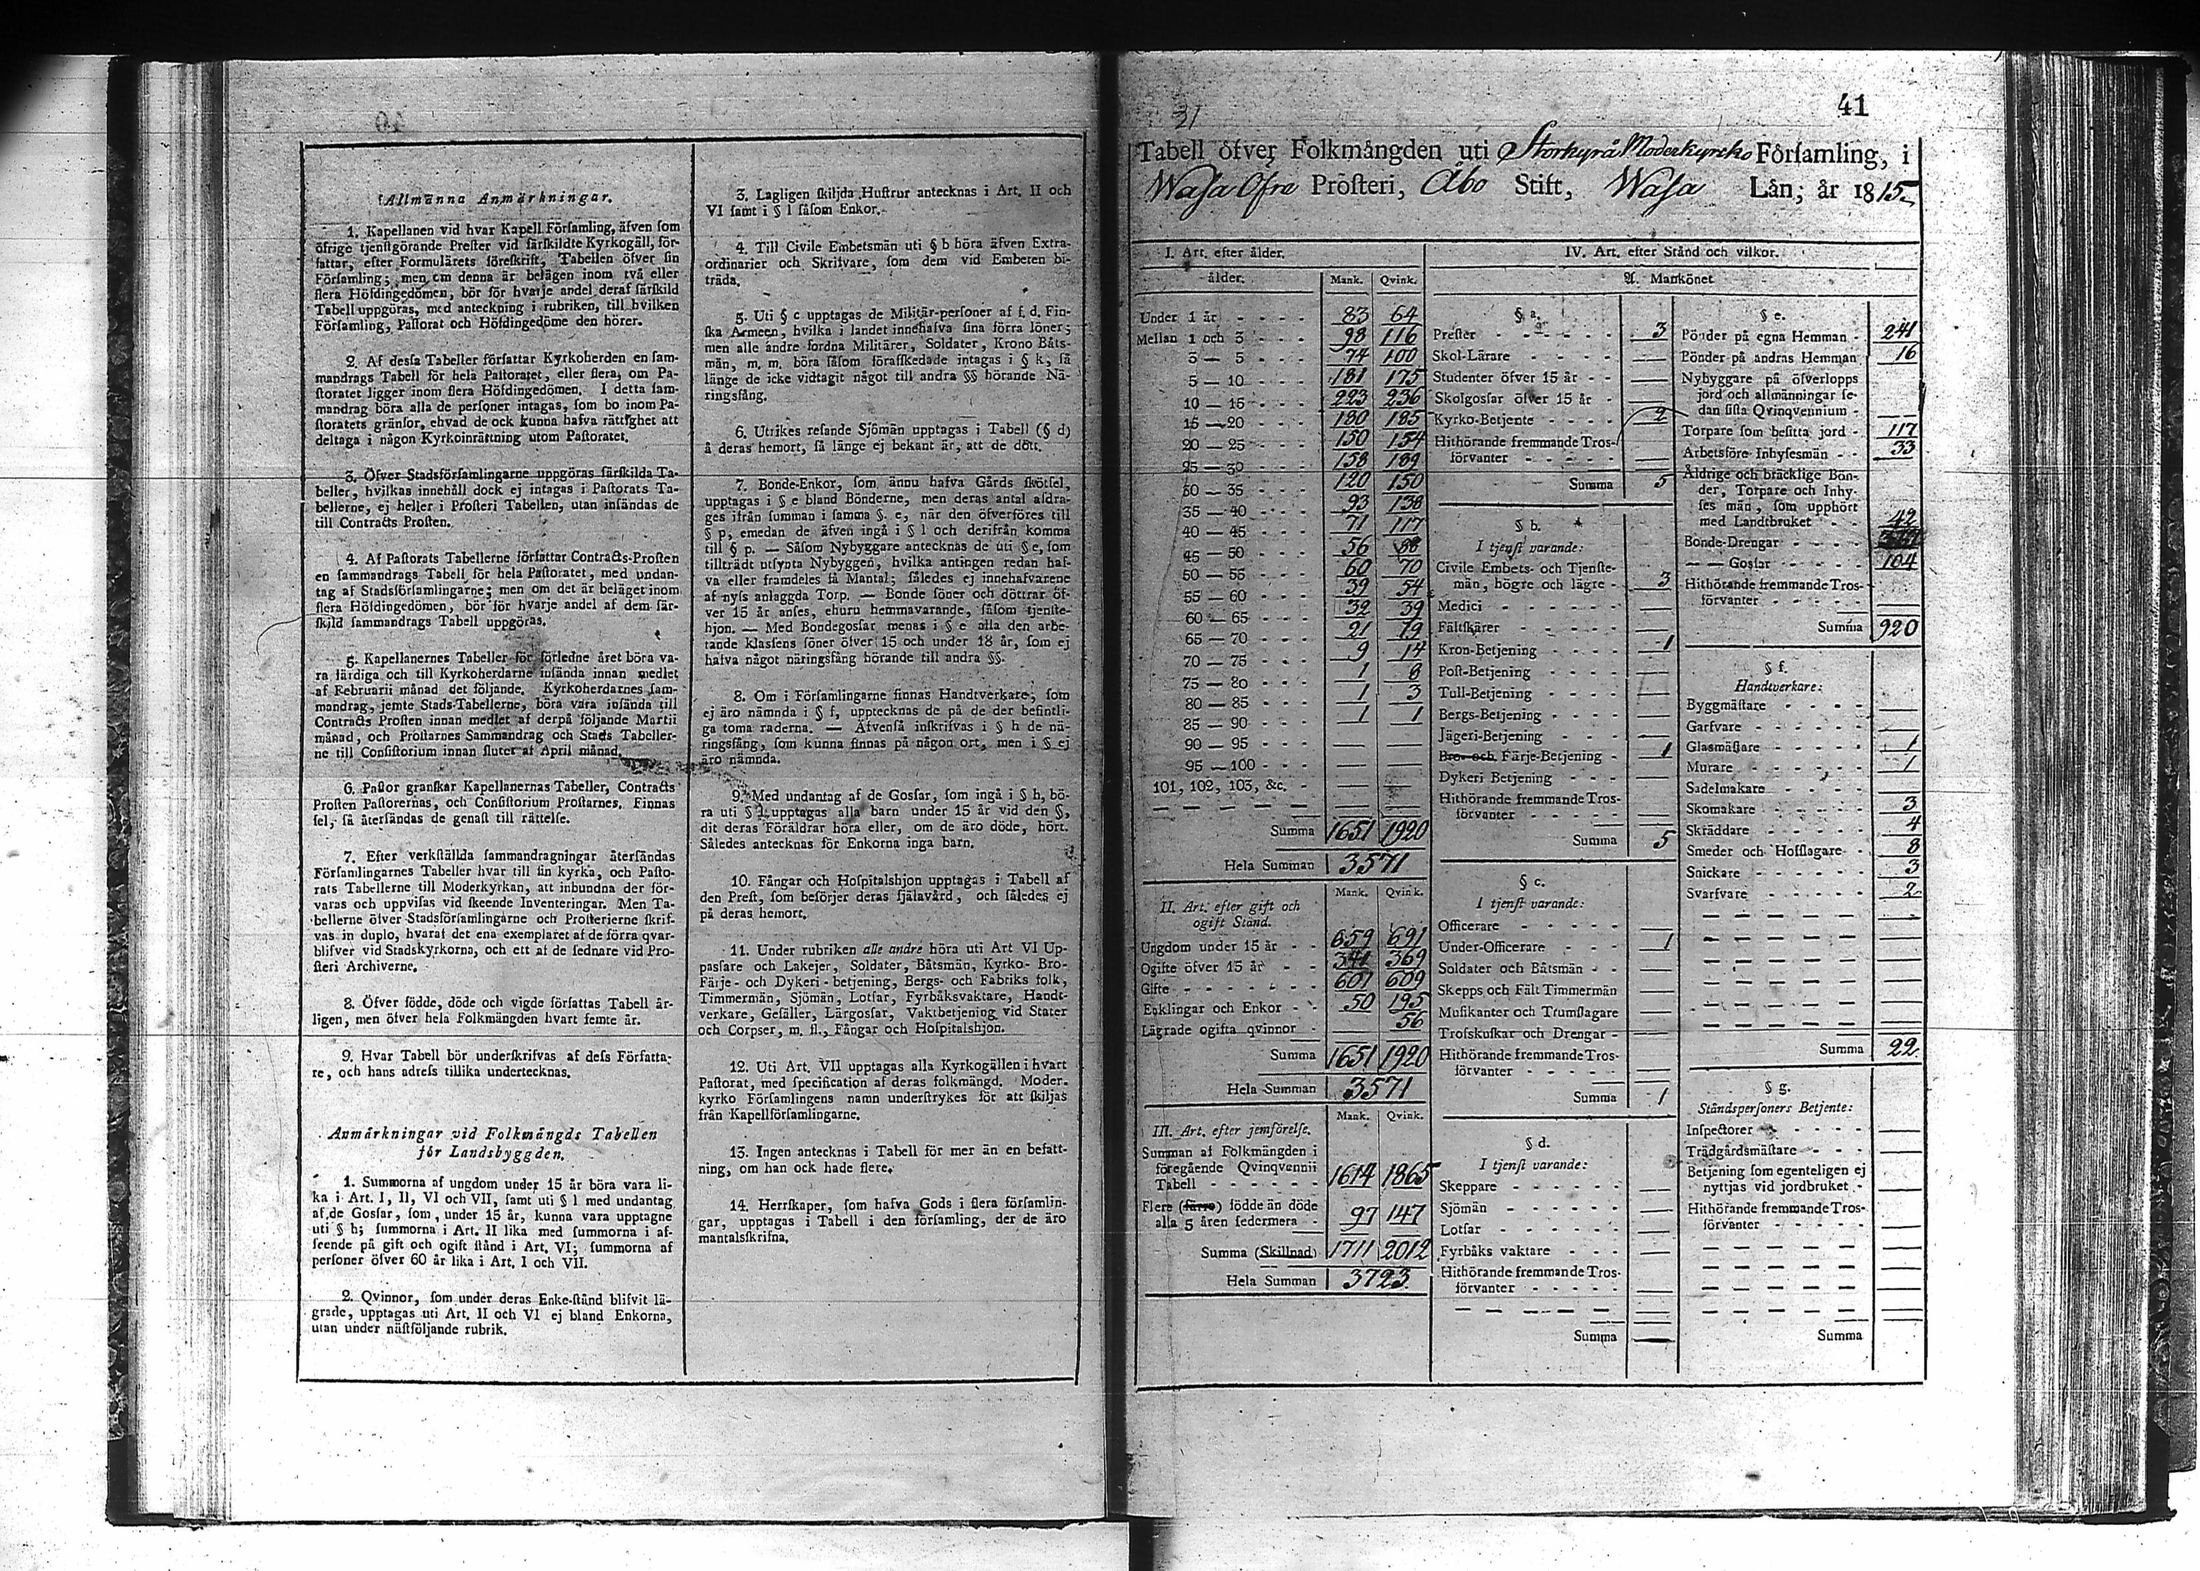 Allmänna Anmärkningar.
1. Kapellanen vid hvar Kapell Församling, äfven som
öfrige tjenstgörande Prester vid särskildte Kyrkogäll, för-
fattar, efter Formulärets föreskrift, Tabellen öfver sin
Församling; men om denna är belägen inom två eller
flera Höfdingedömen, bör för hvarje andel deraf särskild
Tabell uppgöras, med anteckning i rubriken, till hvilken
Församling, Pastorat och Höfdingedöme den hörer.
2. Af dessa Tabeller författar Kyrkoherden en sam-
mandrags Tabell för hela Pastoratet, eller flera, om Pa-
storatet ligger inom flera Höfdingedömen. I detta sam-
mandrag böra alla de personer intagas, som bo inom Pa-
storatets gränsor, ehvad de ock kunna hafva rättighet att
deltaga i någon Kyrkoinrättning utom Pastoratet.
3. Öfver Stadsförsamlingarne uppgöras särskilda Ta-
beller, hvilkas innehåll dock ej intagas i Pastorats Ta-
bellerne, ej heller i Prosteri Tabellen, utan insändas de
till Contracts Prosten.
4. Af Pastorats Tabellerne författar Contracts-Prosten
en sammandrags Tabell för hela Pastoratet, med undan-
tag af Stadsförsamlingarne; men om det är beläget inom
flera Höfdingedömen, bör för hvarje andel af dem sär-
skild sammandrags Tabell uppgöras.
5. Kapellanernes Tabeller för förledne året böra va-
ra färdiga och till Kyrkoherdarne insända innan medlet
af Februarii månad det följande. Kyrkoherdarnes sam-
mandrag, jemte Stads-Tabellerne, böra vara insända till
Contracts Prosten innan medlet af derpå följande Martii
månad, och Prostarnes Sammandrag och Stads Tabeller-
ne till Consistorium innan slutet af April månad.
6. Pastor granskar Kapellanernas Tabeller, Contracts
Prosten Pastorernas, och Consistorium Prostarnes. Finnas
fel, så återsändas de genast till rättelse.
7. Efter verkställda sammandragningar återsändas
Församlingarnes Tabeller hvar till sin kyrka, och Pasto-
rats Tabellerne till Moderkyrkan, att inbundna der för-
varas och uppvisas vid skeende Inventeringar. Men Ta-
bellerne öfver Stadsförsamlingarne och Prosterierne skrif-
vas in duplo, hvaraf det ena exemplaret af de förra qvar-
blifver vid Stadskyrkorna, och ett af de sednare vid Pro-
steri Archiverne.
8. Öfver födde, döde och vigde författas Tabell år-
ligen, men öfver hela Folkmängden hvart femte år.
9. Hvar Tabell bör underskrifvas af dess Författa-
re, och hans adress tillika undertecknas.
Anmärkningar vid Folkmängds Tabellen
för Landsbyggden.
1. Summorna af ungdom under 15 år böra vara li-
ka i Art. I, II, VI och VII, samt uti § l med undantag
af de Gossar, som, under 15 år, kunna vara upptagne
uti § h; summorna i Art. II lika med summorna i af-
seende på gift och ogift stånd i Art. VI; summorna af
personer öfver 60 år lika i Art. I och VII.
2. Qvinnor, som under deras Enke-stånd blifvit lä-
grade, upptagas uti Art. II och VI ej bland Enkorna,
utan under nästföljande rubrik.
3. Lagligen skiljda Hustrur antecknas i Art. II och
VI samt i § l såsom Enkor.
4. Till Civile Embetsmän uti § b höra äfven Extra-
ordinarier och Skrifvare, som dem vid Embeten bi-
träda.
5. Uti § c upptagas de Militär-personer af f. d. Fin-
ska Armeen, hvilka i landet innehafva sina förra löner;
men alle andre fordna Militärer, Soldater, Krono Båts-
män, m. m. böra såsom förafskedade intagas i § k, så
länge de icke vidtagit något till andra §§ hörande Nä-
ringsfång.
6. Utrikes resande Sjömän upptagas i Tabell (§ d)
å deras hemort, så länge ej bekant är, att de dött.
7. Bonde-Enkor, som ännu hafva Gårds skötsel,
upptagas i § e bland Bönderne, men deras antal afdra-
ges ifrån summan i samma §. e, när den öfverföres till
§ p, emedan de äfven ingå i § l och derifrån komma
till § p. — Såsom Nybyggare antecknas de uti § e, som
tillträdt utsynta Nybyggen, hvilka antingen redan haf-
va eller framdeles få Mantal; således ej innehafvarene
af nyss anlaggda Torp. — Bonde söner och döttrar öf-
ver 15 år anses, ehuru hemmavarande, såsom tjenste-
hjon. — Med Bondegossar menas i § e alla den arbe-
tande klassens söner öfver 15 och under 18 år, som ej
hafva något näringsfång hörande till andra §§.
8. Om i Församlingarne finnas Handtverkare, som
ej äro nämnda i § f, upptecknas de på de der befintli-
ga toma raderna. — Äfvenså inskrifvas i § h de nä-
ringsfång, som kunna finnas på någon ort, men i § ej
äro nämnda.
9. Med undantag af de Gossar, som ingå i § h, bö-
ra uti § l upptagas alla barn under 15 år vid den §,
dit deras Föräldrar höra eller, om de äro döde, hört.
Således antecknas för Enkorna inga barn.
10. Fångar och Hospitalshjon upptagas i Tabell af
den Prest, som besörjer deras själavård, och således ej
på deras hemort.
11. Under rubriken alle andre höra uti Art VI Up-
passare och Lakejer, Soldater, Båtsmän, Kyrko- Bro-
Färje- och Dykeri-betjening, Bergs- och Fabriks folk,
Timmermän, Sjömän, Lotsar, Fyrbåksvaktare, Handt-
verkare, Gesäller, Lärgossar, Vaktbetjening vid Stater
och Corpser, m. fl., Fångar och Hospitalshjon.
12. Uti Art. VII upptagas alla Kyrkogällen i hvart
Pastorat, med specification af deras folkmängd. Moder-
kyrko Församlingens namn understrykes för att skiljas
från Kapellförsamlingarne.
13. Ingen antecknas i Tabell för mer än en befatt-
ning, om han ock hade flere.
14. Herrskaper, som hafva Gods i flera församlin-
gar, upptagas i Tabell i den församling, der de äro
mantalsskrifna.
41
21
Tabell öfver Folkmängden uti Storkyrå Moderkyrko Församling, i
Wasa Öfre Prosteri, Åbo Stift, Wasa Län, år 1815.
I. Art. efter ålder.
ålder. Mank. Qvink.
Under 1 år 83 64
Mellan 1 och 3 98 116
3 — 5 74 100
5 — 10 181 175
10 — 15 223 236
15 — 20 180 185
20 — 25 150 154
25 — 30 158 189
30 — 35 120 150
35 — 40 93 138
40 — 45 71 117
45 — 50 56 88
50 — 55 60 70
55 — 60 39 54
60 — 65 32 39
65 — 70 21 19
70 — 75 9 14
75 — 80 1 8
80 — 85 1 3
85 — 90 1 1
90 — 95
95 — 100
101, 102, 103, &c.
Summa 1651 1920
Hela Summan 3571
II. Art. efter gift och
ogift Stånd.
Mank. Qvink.
Ungdom under 15 år 659 691
Ogifte öfver 15 år 341 369
Gifte 601 609
Enklingar och Enkor 50 195
Lägrade ogifta qvinnor 56
Summa 1651 1920
Hela Summan 3571
Mank. Qvink.
III. Art. efter jemförelse.
Summan af Folkmängden i
föregående Qvinqvennii
Tabell 1614 1865
Flere (färre) födde än döde
alla 5 åren sedermera 97 147
Summa (Skillnad) 1711 2012
Hela Summan 3723
IV. Art. efter Stånd och vilkor.
A. Mankönet
§ a.
Prester 3
Skol-Lärare
Studenter öfver 15 år
Skolgossar öfver 15 år
Kyrko-Betjente 2
Hithörande fremmande Tros-
förvanter
Summa 5
§ b.
I tjenst varande:
Civile Embets- och Tjenste-
män, högre och lägre 3
Medici
Fältskärer
Kron-Betjening 1
Post-Betjening
Tull-Betjening
Bergs-Betjening
Jägeri-Betjening
Bro- och Färje-Betjening 1
Dykeri Betjening
Hithörande fremmande Tros-
förvanter
Summa 5
§ c.
I tjenst varande:
Officerare
Under-Officerare 1
Soldater och Båtsmän
Skepps och Fält Timmermän
Musikanter och Trumslagare
Trosskuskar och Drengar
Hithörande fremmande Tros-
förvanter
Summa 1
§ d.
I tjenst varande:
Skeppare
Sjömän
Lotsar
Fyrbåks vaktare
Hithörande fremmande Tros-
förvanter
Summa
§ e.
Bönder på egna Hemman 241
Bönder på andras Hemman 16
Nybyggare på öfverlopps
jord och allmänningar se-
dan sista Qvinqvennium
Torpare som besitta jord 117
Arbetsföre Inhysesmän 33
Åldrige och bräcklige Bön-
der, Torpare och Inhy-
ses män, som upphört
med Landtbruket 42
Bonde-Drengar
— — Gossar 104
Hithörande fremmande Tros-
förvanter
Summa 920
§ f.
Handtverkare:
Byggmästare
Garfvare
Glasmästare 1
Murare 1
Sadelmakare
Skomakare 3
Skräddare 4
Smeder och Hofslagare 8
Snickare 3
Svarfvare 2
Summa 22
§ g.
Ståndspersoners Betjente:
Inspectorer
Trädgårdsmästare
Betjening som egenteligen ej
nyttjas vid jordbruket
Hithörande fremmande Tros-
förvanter
Summa